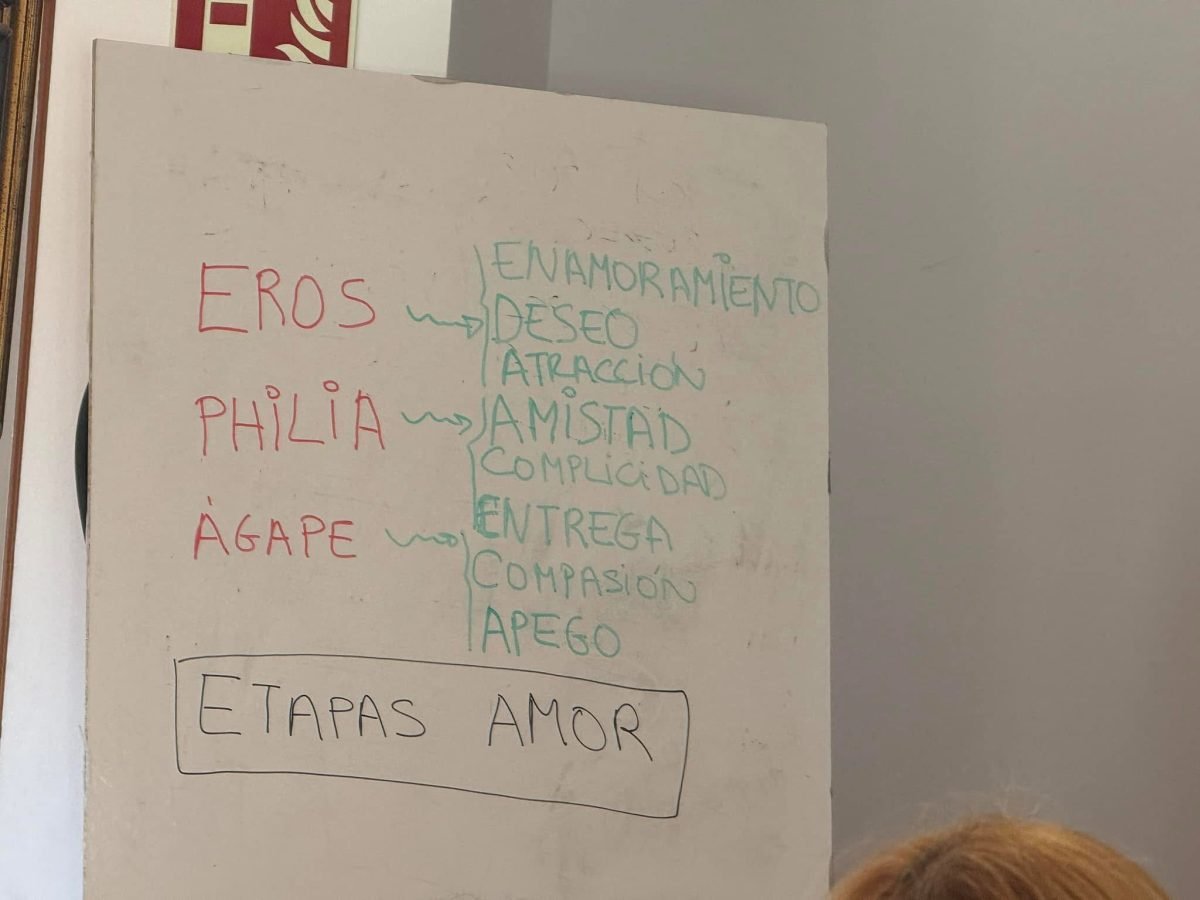 EROS
ENAMORAMIENTO
DESEO
ATRACCIÓN
PHILIA
AMISTAD
COMPLICIDAD
ÁGAPE
ENTREGA
COMPASIÓN
APEGO
ETAPAS AMOR